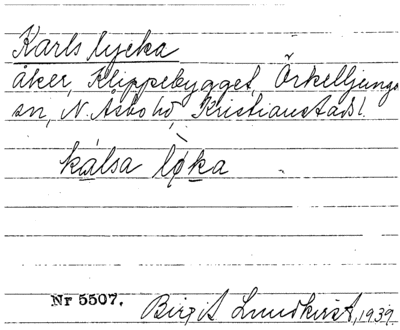 Karls lycka
åker, Klippebygget, Örkelljunga
sn, N. Åsbo hd, Kristianstads l.
kálsa lỳka
Nr 5507.
Birgit Lundkvist, 1939.